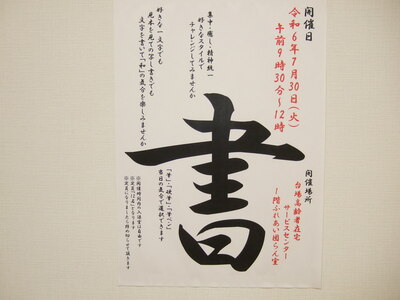 開催日
令和6年7月30日(火)
午前9時30分～12時
集中・癒し・精神統一
好きなスタイルで
チャレンジしてみませんか
好きな一文字でも
見本を見ての写し書きでも
文字を書いて「和」の気分を楽しみませんか
書
開催場所
台場高齢者在宅
サービスセンター
1階ふれあい団らん室
「筆」・「硬筆」・「筆ペン」
当日の気分で選択できます
※開催時間内の入退室は自由です